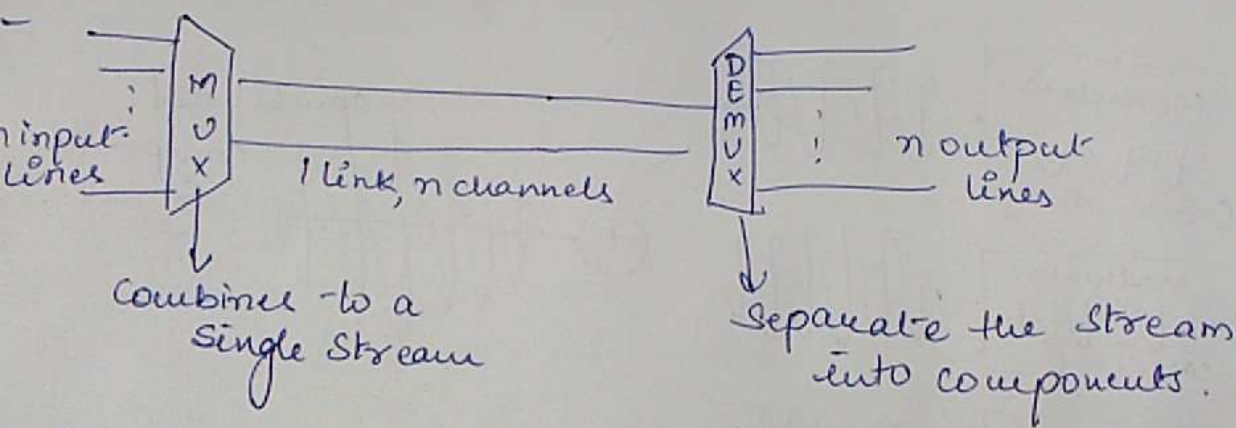 MUX
DEMUX
n input
lines
1 link, n channels
n output
lines
Combines to a
Single Stream
Separate the Stream
into components.